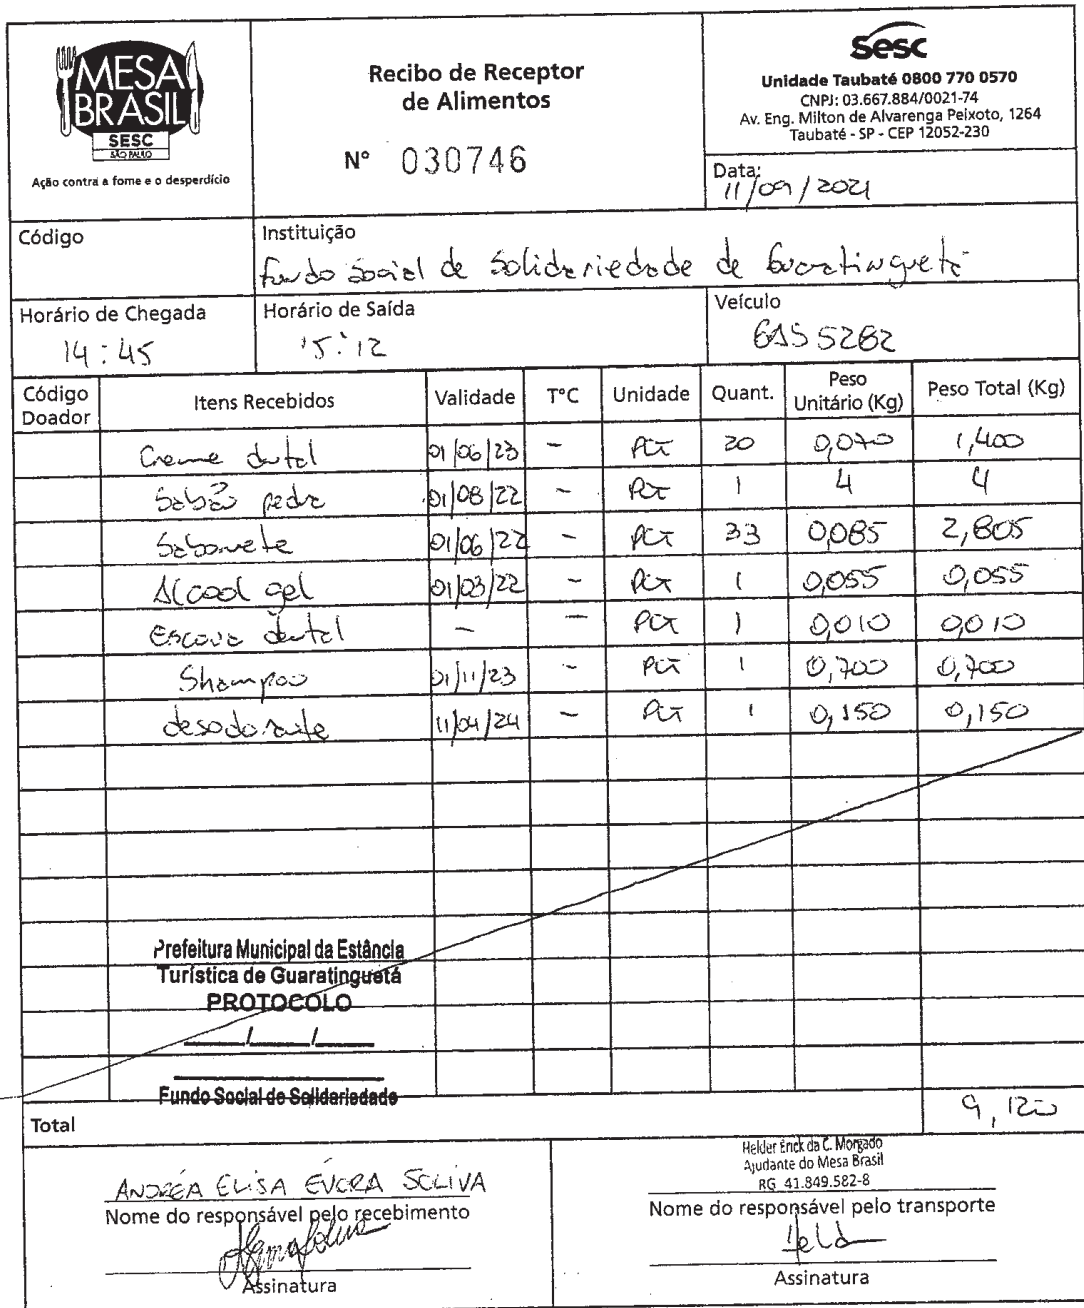 MESA
BRASIL
SESC
SÃO PAULO
Ação contra a fome e o desperdício
Recibo de Receptor
de Alimentos
N° 030746
Sesc
Unidade Taubaté 0800 770 0570
CNPJ: 03.667.884/0021-74
Av. Eng. Milton de Alvarenga Peixoto, 1264
Taubaté - SP - CEP 12052-230
Data:
11/09/2021
Código
Instituição
Fundo Social de Solidariedade de Guaratinguetá
Horário de Chegada
14:45
Horário de Saída
15:12
Veículo
5282
Código Doador Itens Recebidos Validade T°C Unidade Quant. Peso Unitário (Kg) Peso Total (Kg)
Creme dental 01/06/23 - PCT 20 0,070 1,400
Sabão pedra 01/08/22 - PCT 1 4 4
Sabonete 01/06/22 - PCT 33 0,085 2,805
Alcool gel 01/03/22 - PCT 1 0,055 0,055
Escova dental - - PCT 1 0,010 0,010
Shampoo 01/11/23 - PCT 1 0,700 0,700
desodorante 11/04/24 - PCT 1 0,150 0,150
Prefeitura Municipal da Estância
Turística de Guaratinguetá
PROTOCOLO
___/___/___
Fundo Social de Solidariedade
Total 9,120
ANDRÉA ELISA ÉVORA SOLIVA
Nome do responsável pelo recebimento
Assinatura
Helder Erick da C. Morgado
Ajudante do Mesa Brasil
RG 41.849.582-8
Nome do responsável pelo transporte
Held
Assinatura